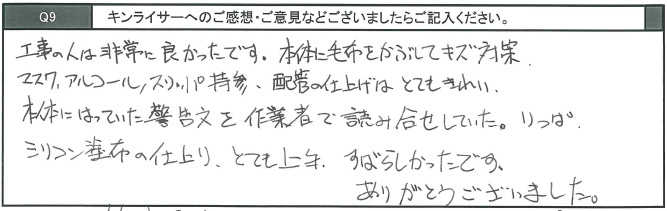 Q9 キンライサーへのご感想・ご意見などございましたらご記入ください。
工事の人は非常に良かったです。本体に毛布をかぶしてキズ対策.
マスク,アルコール,スリッパ持参、配管の仕上げは とてもきれい.
本体にはっていた警告文を作業者で読み合せしていた。りっぱ.
シリコン塗布の仕上り、とても上手. すばらしかったです。
ありがとうございました。